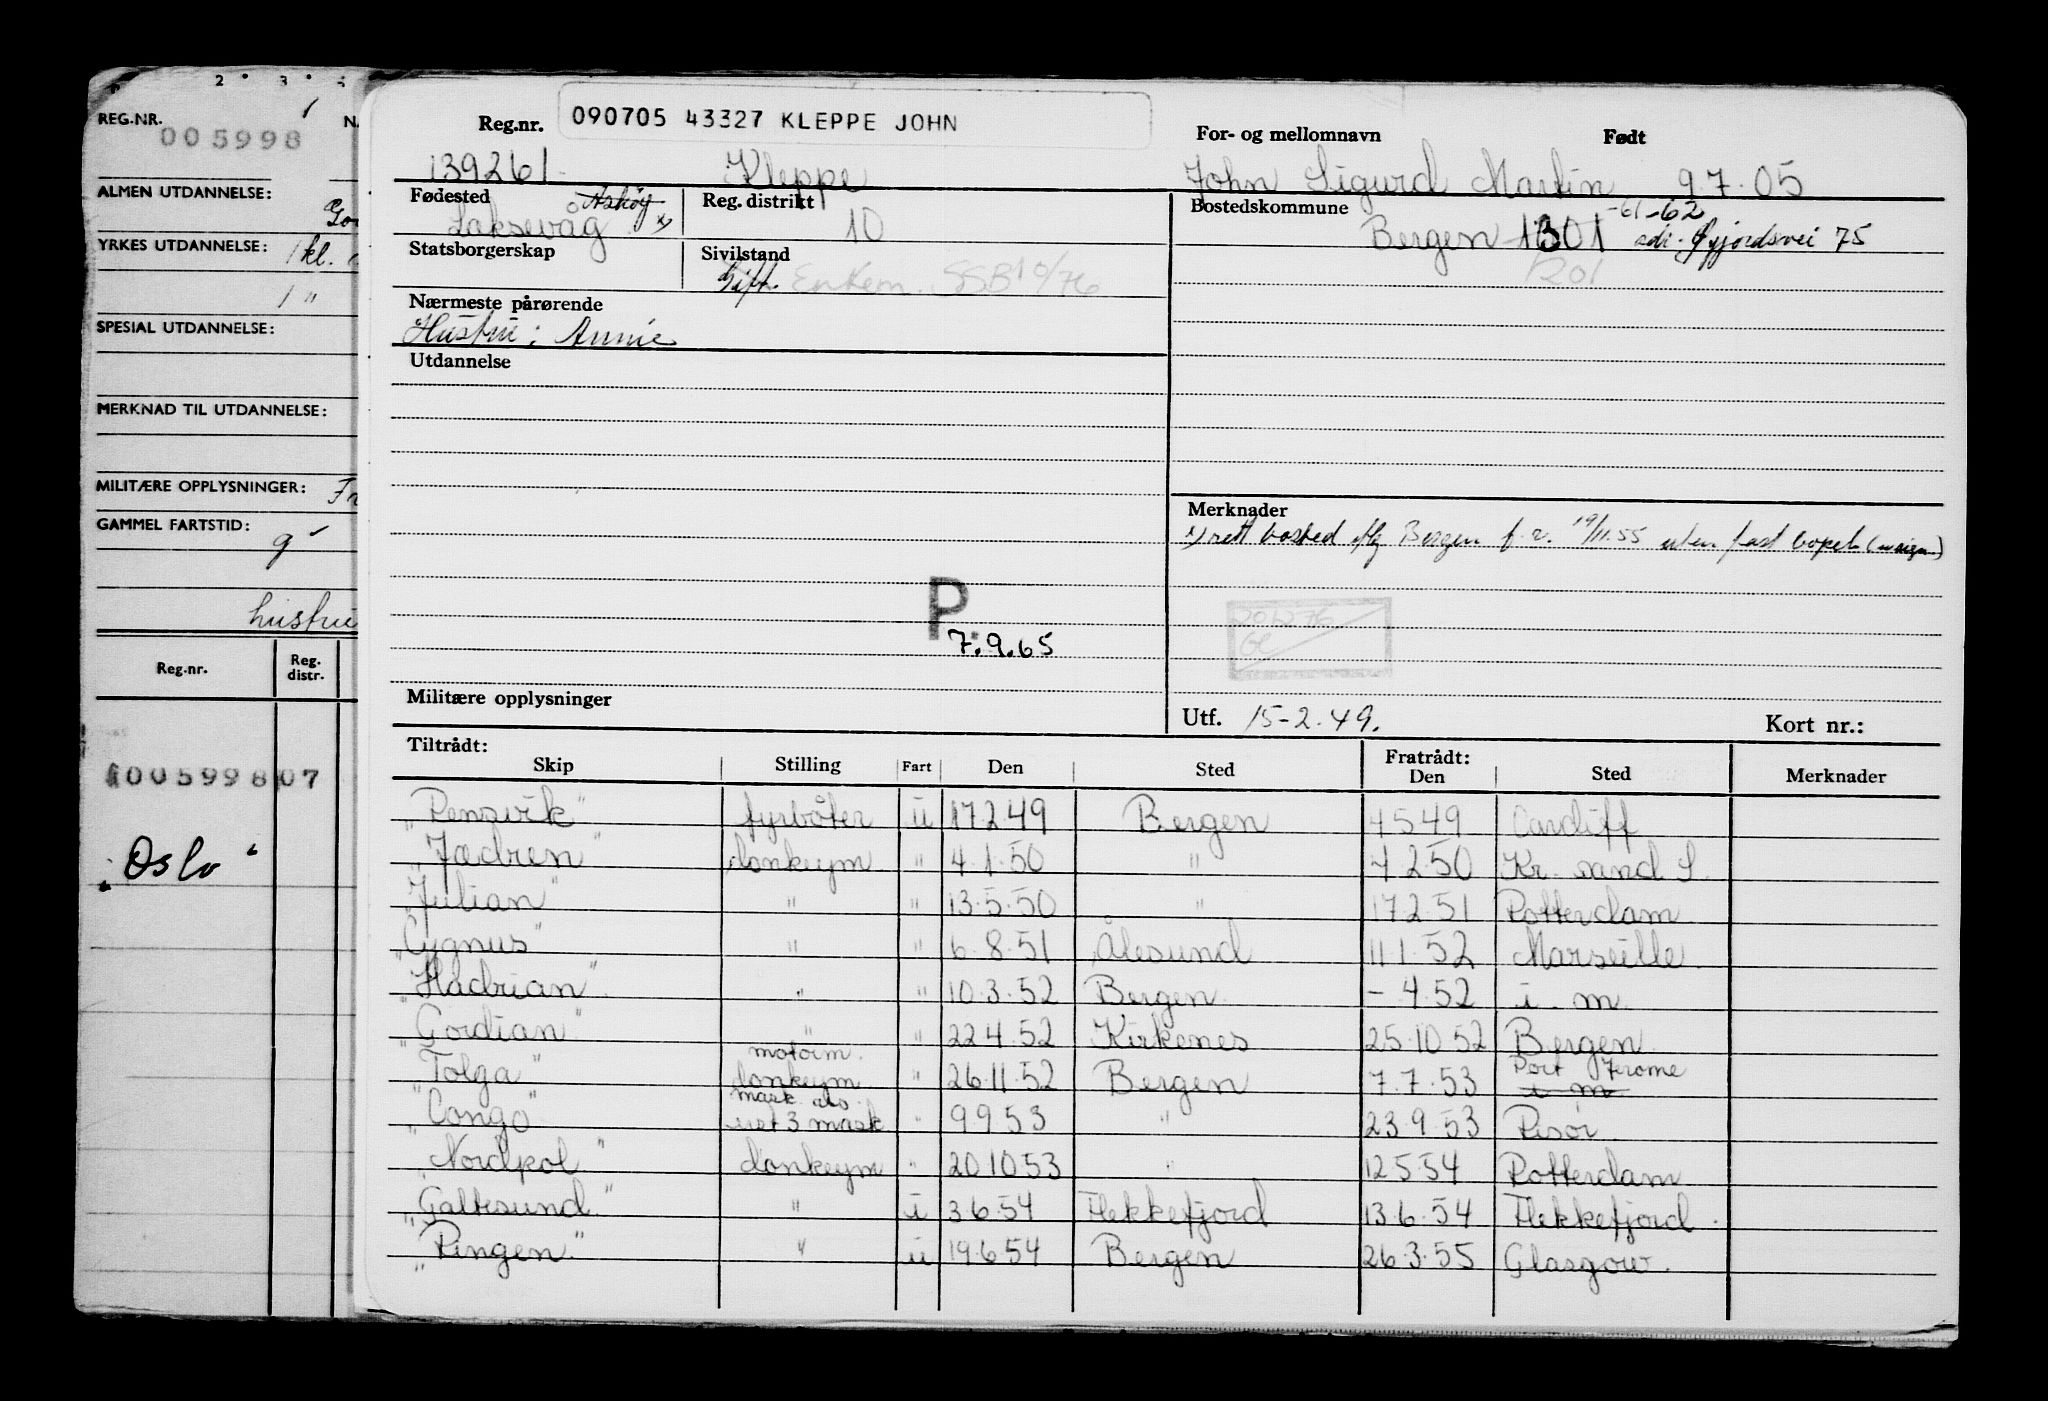 2 3
REG.NR.
005998
ALMEN UTDANNELSE:
YRKES UTDANNELSE: 1 kl.
1 "
SPESIAL UTDANNELSE:
MERKNAD TIL UTDANNELSE:
MILITÆRE OPPLYSNINGER:
GAMMEL FARTSTID:
hustru
Reg.nr. Reg. distr.
100599807
"Oslo"
Reg.nr. 090705 43327 KLEPPE JOHN For- og mellomnavn Født
139261 Kleppe John Sigurd Martin 9.7.05
Fødested Askøy Reg. distrikt Bostedskommune -61-62
Laksevåg x) 10 Bergen 1301 adr. 75
1201
Statsborgerskap Sivilstand
Gift. Enkem. SSB 10/76
Nærmeste pårørende
Hustru: Annie
Utdannelse
Merknader
x) rett bosted iflg Bergen f.r. 19/11.55 uten fast bopel
P
7.9.65
201276
Militære opplysninger
Utf. 15-2.49. Kort nr.:
Tiltrådt: Fratrådt:
Skip Stilling Fart Den Sted Den Sted Merknader
"Rensvik" fyrbøter u 17.2.49 Bergen 4.5.49 Cardiff
"Jædren" donkeym " 4.1.50 " 4.2.50 Kr. sand S.
"Julian" " " 13.5.50 " 17.2.51 Rotterdam
"Cygnus" " " 6.8.51 Ålesund 11.1.52 Marseille
"Hadrian" " " 10.3.52 Bergen - 4.52 i. m.
"Gordian" " " 22.4.52 Kirkenes 25.10.52 Bergen
"Tolga" motorm. donkeym " 26.11.52 Bergen 7.7.53 Port Jerome i m
"Congo" mask. ass. ust 3 mask " 9.9.53 " 23.9.53 Risør
"Nordpol" donkeym " 20.10.53 " 12.5.54 Rotterdam
"Galtesund" " i 3.6.54 Flekkefjord 13.6.54 Flekkefjord.
"Ringen" " u 19.6.54 Bergen 26.3.55 Glasgow.